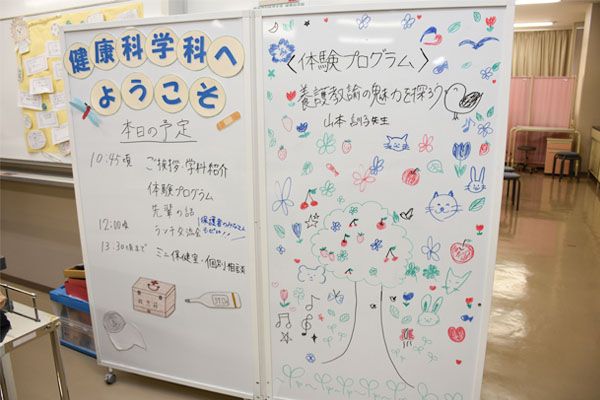 健康科学科へ
ようこそ
本日の予定
10:45頃 ご挨拶・学科紹介
体験プログラム
先輩の話
12:00頃 ランチ交流会
保護者のみなさんも
13:30頃まで ミニ保健室・個別相談
救急箱
〈体験プログラム〉
養護教諭の魅力を探ろう
山本 訓子先生